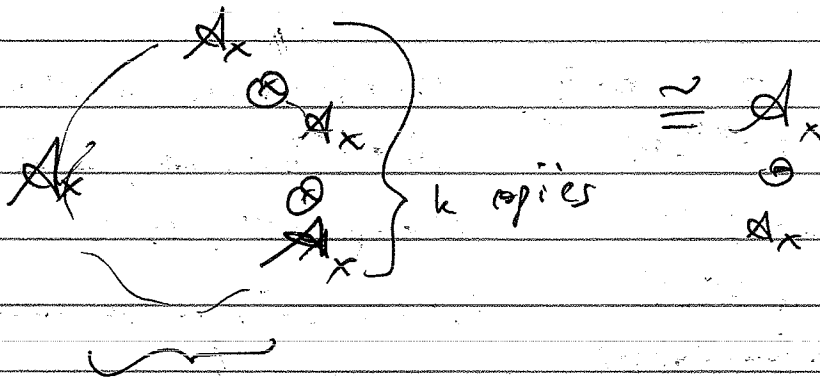 𝒜ₓ
⊗ 𝒜ₓ
≅ 𝒜ₓ
𝒜ₓ
⊗
k copies
⊖
𝒜ₓ
𝒜ₓ